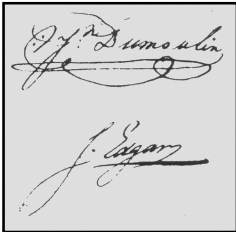 Dumoulin
J. Edgar